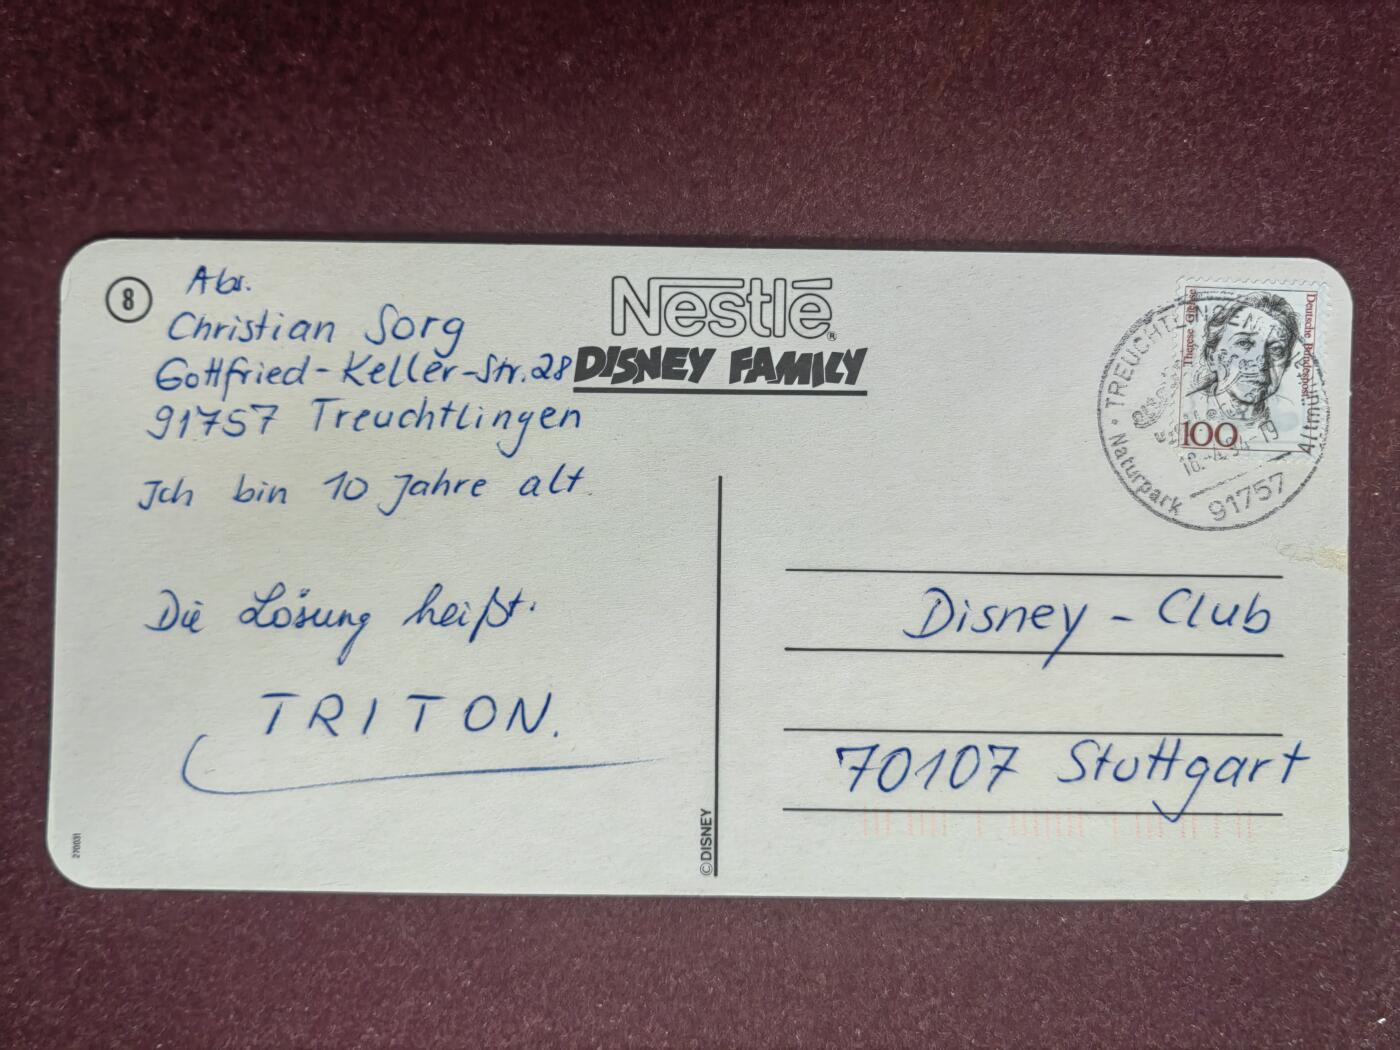 8
Abs.
Christian Sorg
Gottfried-Keller-Str. 28
91757 Treuchtlingen
Ich bin 10 Jahre alt.
Die Lösung heißt:
TRITON.
270031
Nestlé®
DISNEY FAMILY
©DISNEY
Therese Giehse
Deutsche Bundespost
100
TREUCHTLINGEN 1
Naturpark Altmühltal
91757
Disney-Club
70107 Stuttgart